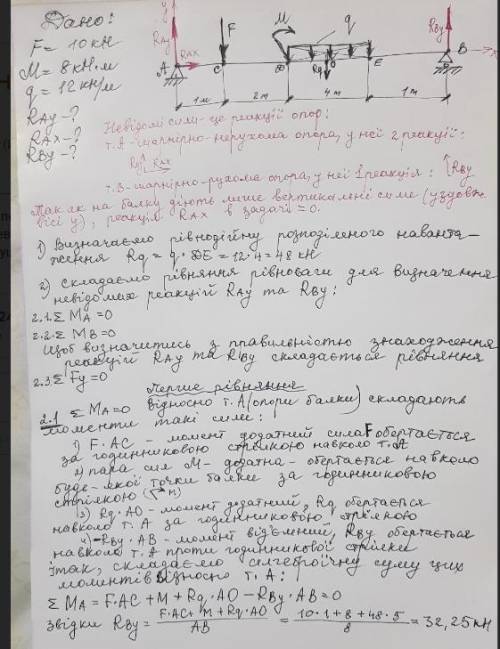 Дано:
F = 10 кН
M = 8 кН·м
q = 12 кН/м
RAy - ?
RAx - ?
RBy - ?
y
RAy
A
RAx
F
C
M
D
q
Rq
O
E
RBy
B
x
1м
2м
4м
1м
Невідомі сили - це реакції опор:
т.А - шарнірно-нерухома опора, у неї 2 реакції:
RAy RAx
т.В - шарнірно-рухома опора, у неї 1 реакція: RBy
Так як на балку діють лише вертикальні сили (уздовж
вісі y), реакція RAx в задачі = 0.
1) Визначаємо рівнодійну розподіленого наванта-
ження Rq = q · DE = 12·4 = 48 кН
2) Складаємо рівняння рівноваги для визначення
невідомих реакцій RAy та RBy:
2.1. Σ MA = 0
2.2. Σ MB = 0
Щоб визначитись з правильністю знаходження
реакцій RAy та RBy складається рівняння
2.3. Σ Fy = 0
Перше рівняння
2.1 Σ MA = 0 відносно т.А (опори балки) складають
моменти такі сили:
1) F·AC - момент додатний сила F обертається
за годинниковою стрілкою навколо т.А
2) пара сил M - додатна - обертається навколо
будь-якої точки балки за годинниковою
стрілкою ( M)
3) Rq·AO - момент додатний, Rq обертається
навколо т.А за годинниковою стрілкою
4) -RBy·AB - момент від'ємний, RBy обертається
навколо т.А проти годинникової стрілки
Так, складаємо алгебраїчну суму цих
моментів відносно т.А:
Σ MA = F·AC + M + Rq·AO - RBy·AB = 0
Звідки RBy = (F·AC + M + Rq·AO)/AB = (10·1+8+48·5)/8 = 32,25 кН